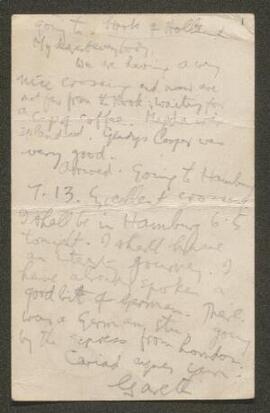 1
going to. Hook of Holland
My dearest everybody,
We are having a very
nice crossing and now are
not far from the Hook, waiting for
a cup of coffee.
Gladys Cooper was
very good.
Arrived. Going to Hamburg
7.13. Excellent crossing
I shall be in Hamburg 6.5
tonight. I shall have
an journey. I
have already spoken a
good bit of German. There
was a German going
by the express from London.
Cariad
Gareth